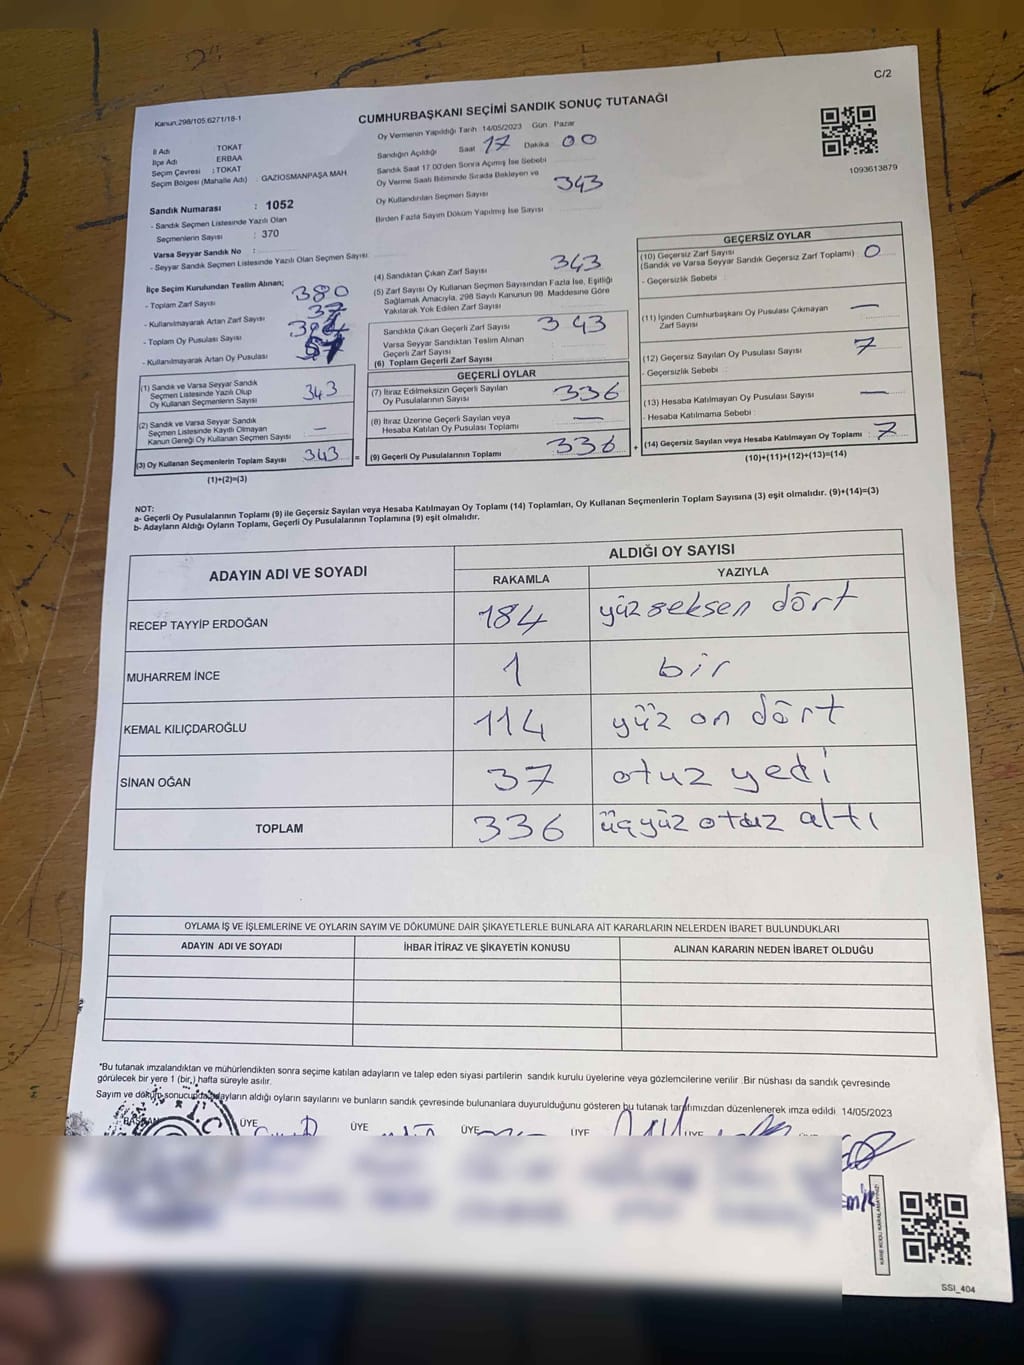 C/2
Kanun:298/105,6271/18-1
CUMHURBAŞKANI SEÇİMİ SANDIK SONUÇ TUTANAĞI
Oy Vermenin Yapıldığı Tarih 14/05/2023 Gün : Pazar
İl Adı : TOKAT
İlçe Adı : ERBAA
Seçim Çevresi : TOKAT
Seçim Bölgesi (Mahalle Adı) : GAZİOSMANPAŞA MAH.
Sandığın Açıldığı Saat 17 Dakika 00
Sandık Saat 17:00'den Sonra Açımış İse Sebebi
Oy Verme Saati Bitiminde Sırada Bekleyen ve
Oy Kullandırılan Seçmen Sayısı 343
Birden Fazla Sayım Döküm Yapılmış İse Sayısı
1093613879
Sandık Numarası : 1052
- Sandık Seçmen Listesinde Yazılı Olan
Seçmenlerin Sayısı : 370
Varsa Seyyar Sandık No :
- Seyyar Sandık Seçmen Listesinde Yazılı Olan Seçmen Sayısı
İlçe Seçim Kurulundan Teslim Alınan;
- Toplam Zarf Sayısı 380
- Kullanılmayarak Artan Zarf Sayısı 37
- Toplam Oy Pusulası Sayısı
- Kullanılmayarak Artan Oy Pusulası
(1) Sandık ve Varsa Seyyar Sandık
Seçmen Listesinde Yazılı Olup
Oy Kullanan Seçmenlerin Sayısı 343
(2) Sandık ve Varsa Seyyar Sandık
Seçmen Listesinde Kayıtlı Olmayan
Kanun Gereği Oy Kullanan Seçmen Sayısı —
(3) Oy Kullanan Seçmenlerin Toplam Sayısı 343 =
(1)+(2)=(3)
(4) Sandıktan Çıkan Zarf Sayısı 343
(5) Zarf Sayısı Oy Kullanan Seçmen Sayısından Fazla İse, Eşitliği
Sağlamak Amacıyla, 298 Sayılı Kanunun 98. Maddesine Göre
Yakılarak Yok Edilen Zarf Sayısı
Sandıkta Çıkan Geçerli Zarf Sayısı 343
Varsa Seyyar Sandıktan Teslim Alınan
Geçerli Zarf Sayısı
(6) Toplam Geçerli Zarf Sayısı
GEÇERLİ OYLAR
(7) İtiraz Edilmeksizin Geçerli Sayılan
Oy Pusulasının Sayısı 336
(8) İtiraz Üzerine Geçerli Sayılan veya
Hesaba Katılan Oy Pusulası Toplamı —
(9) Geçerli Oy Pusulalarının Toplamı 336 +
GEÇERSİZ OYLAR
(10) Geçersiz Zarf Sayısı
(Sandık ve Varsa Seyyar Sandık Geçersiz Zarf Toplamı) 0
- Geçersizlik Sebebi :
(11) İçinden Cumhurbaşkanı Oy Pusulası Çıkmayan
Zarf Sayısı —
(12) Geçersiz Sayılan Oy Pusulası Sayısı 7
- Geçersizlik Sebebi
(13) Hesaba Katılmayan Oy Pusulası Sayısı —
- Hesaba Katılmama Sebebi :
(14) Geçersiz Sayılan veya Hesaba Katılmayan Oy Toplamı 7
(10)+(11)+(12)+(13)=(14)
NOT:
a- Geçerli Oy Pusulalarının Toplamı (9) ile Geçersiz Sayılan veya Hesaba Katılmayan Oy Toplamı (14) Toplamları, Oy Kullanan Seçmenlerin Toplam Sayısına (3) eşit olmalıdır. (9)+(14)=(3)
b- Adayların Aldığı Oyların Toplamı, Geçerli Oy Pusulalarının Toplamına (9) eşit olmalıdır.
ADAYIN ADI VE SOYADI ALDIĞI OY SAYISI
RAKAMLA YAZIYLA
RECEP TAYYİP ERDOĞAN 184 yüz seksen dört
MUHARREM İNCE 1 bir
KEMAL KILIÇDAROĞLU 114 yüz on dört
SİNAN OĞAN 37 otuz yedi
TOPLAM 336 üçyüz otuz altı
OYLAMA İŞ VE İŞLEMLERİNE VE OYLARIN SAYIM VE DÖKÜMÜNE DAİR ŞİKAYETLERLE BUNLARA AİT KARARLARIN NELERDEN İBARET BULUNDUKLARI
ADAYIN ADI VE SOYADI İHBAR İTİRAZ VE ŞİKAYETİN KONUSU ALINAN KARARIN NEDEN İBARET OLDUĞU
*Bu tutanak imzalandıktan ve mühürlendikten sonra seçime katılan adayların ve talep eden siyasi partilerin sandık kurulu üyelerine veya gözlemcilerine verilir. Bir nüshası da sandık çevresinde
görülecek bir yere 1 (bir.) hafta süreyle asılır.
Sayım ve döküm sonucunda adayların aldığı oyların sayılarını ve bunların sandık çevresinde bulunanlara duyurulduğunu gösteren bu tutanak tarafımızdan düzenlenerek imza edildi. 14/05/2023
BAŞKAN ÜYE ÜYE ÜYE ÜYE ÜYE
T.C.
KARE KODU KARALAMAYINIZ!
SSI_404